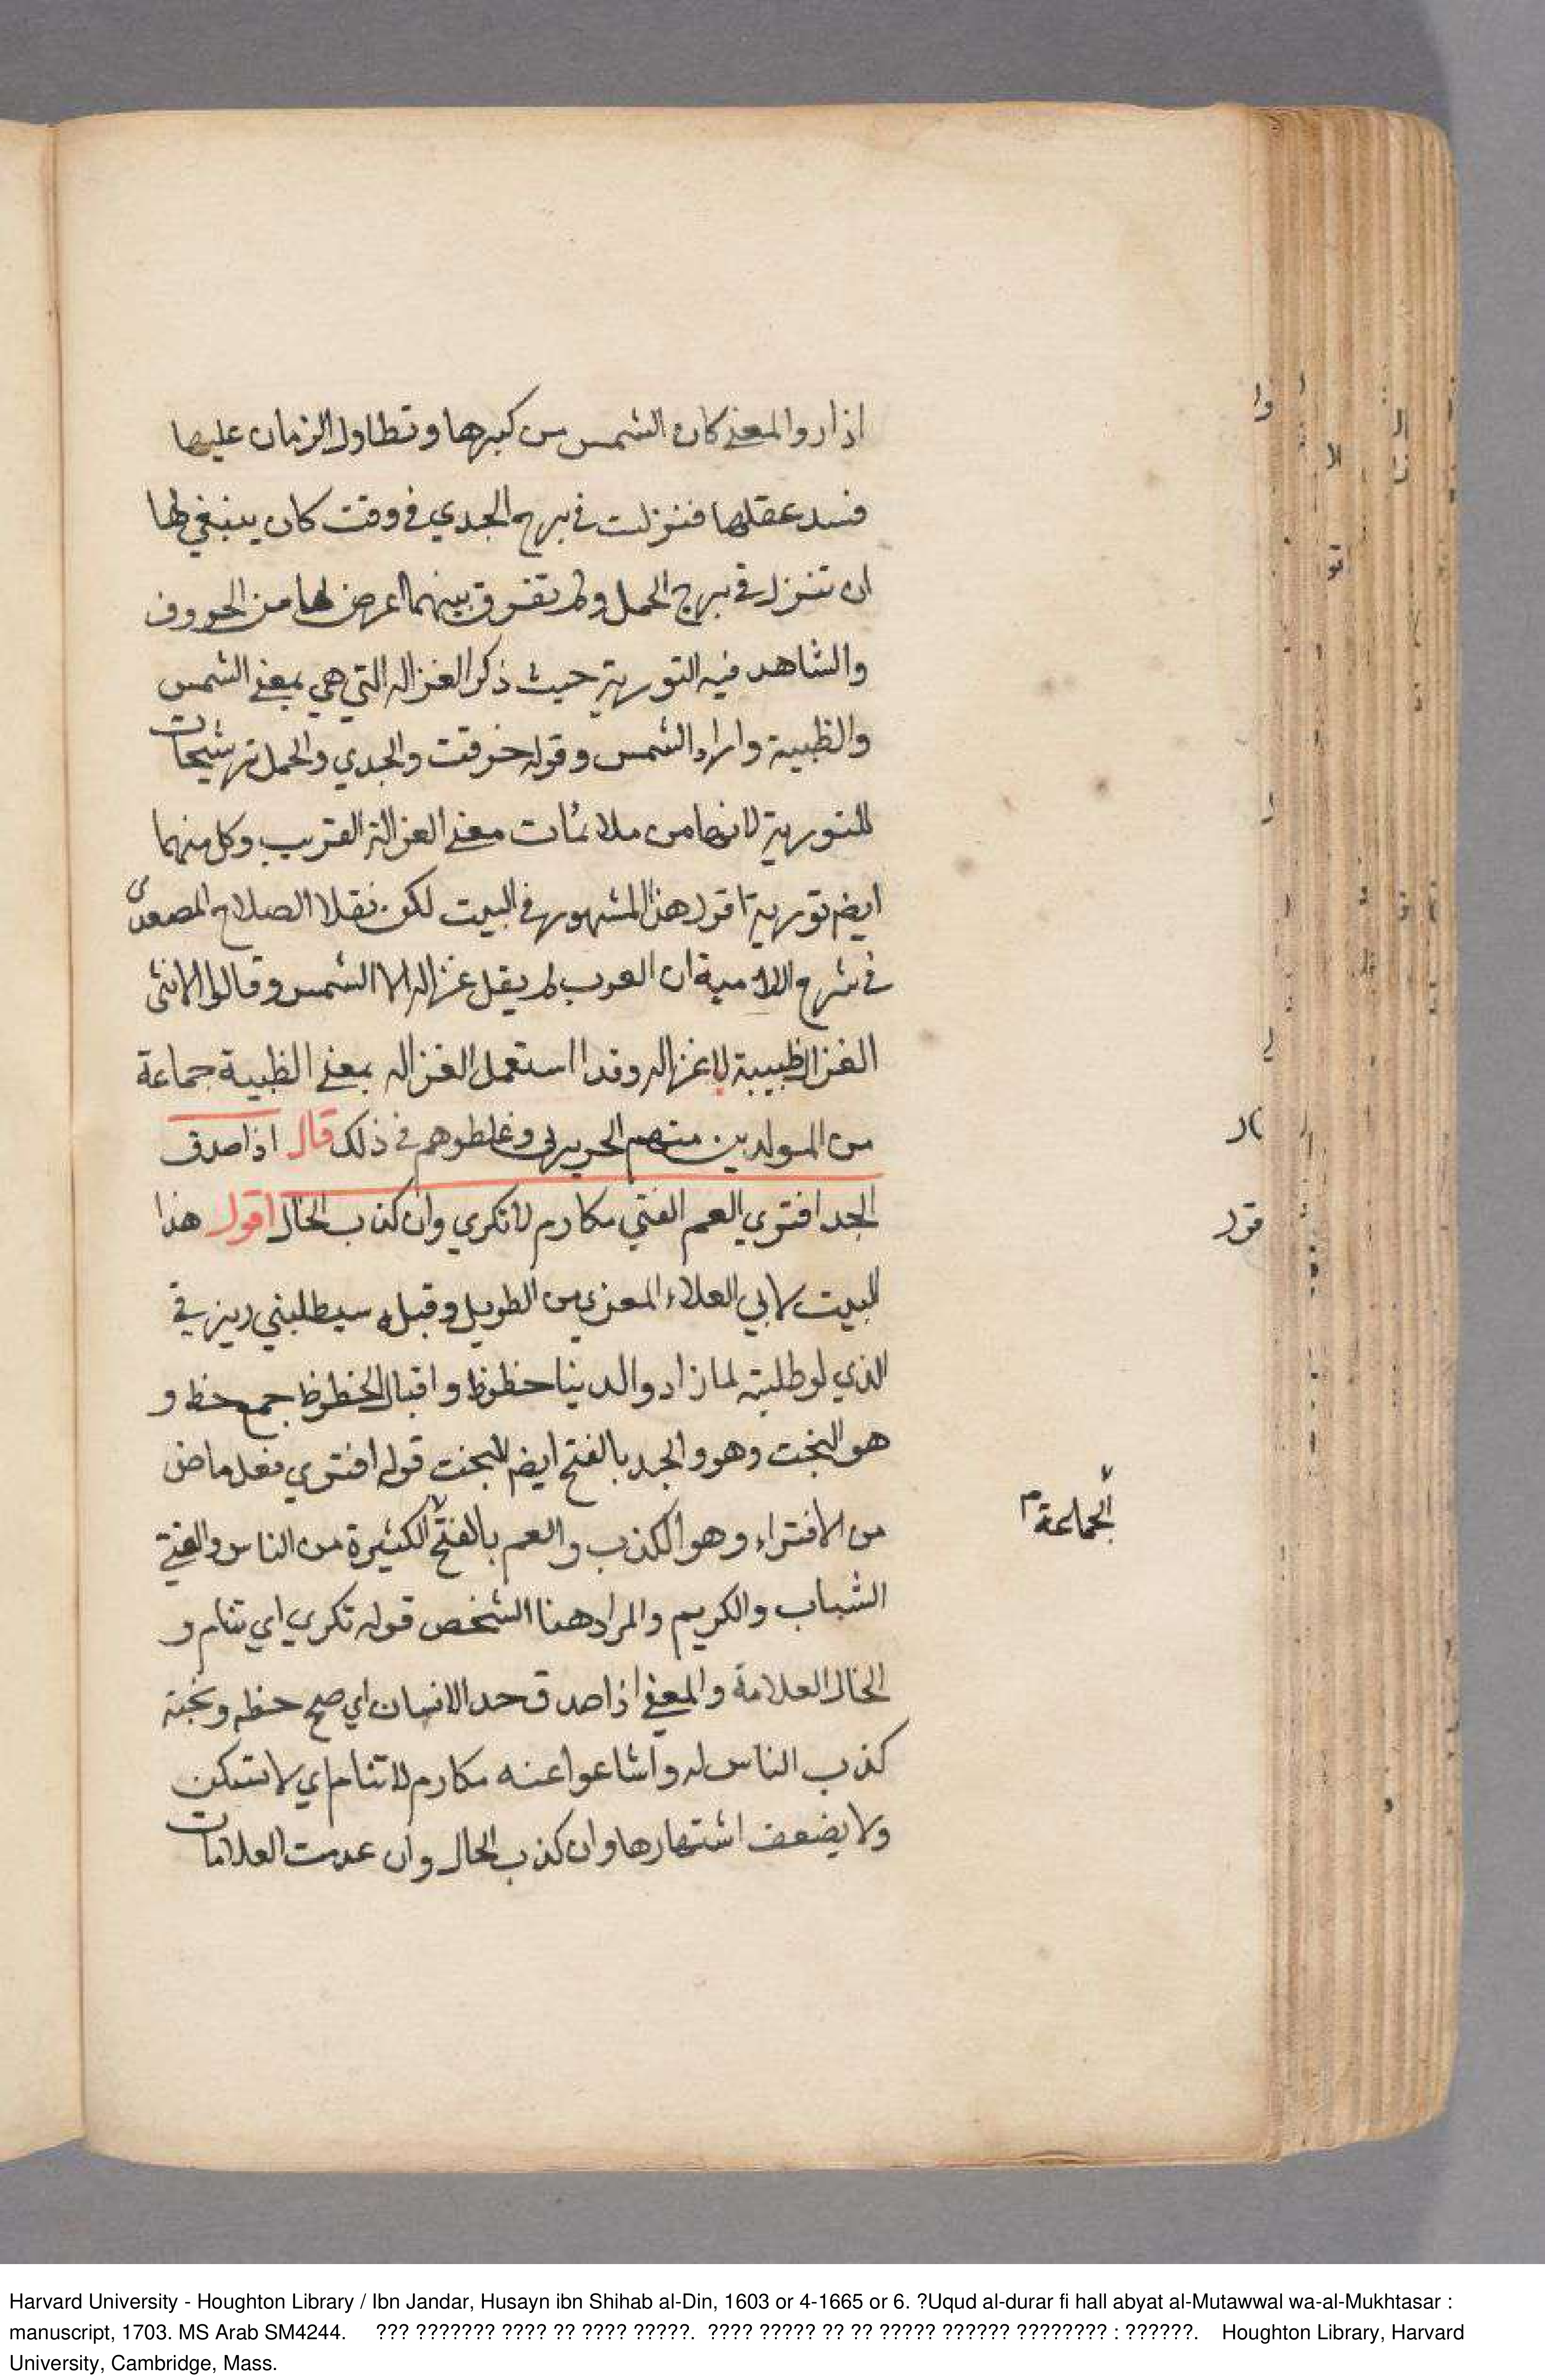 اذار والمعنى كان الشمس من كبرها وتطاول الزمان عليها
فسد عقلها فنزلت في برج الجدي في وقت كان ينبغي لها
ان تنزل في برج الحمل ولم تفرق بينهما عرض لها من الحروف
والشاهد فيه التورية حيث ذكر الغزاله التي هي بمعنى الشمس
والظبية واراد الشمس وقوله خرقت والجدي والحمل ترشيحات
للتورية لانها من ملائمات معنى الغزالة القريب وكل منهما
ايضم تورية اقول هذا المشهور في البيت لكن نقل الصلاح الصفدى
في شرح اللامية ان العرب لم يقل غزاله الا الشمس وقالوا لانثى
الغزال ظبيبة لا غزاله وقد استعمل الغزاله بمعنى الظبية جماعة
من المولدين منهم الحريرى وغلطوهم في ذلك قال اذا صدق
الجد افترى العم الفتى مكارم لا تكري وان كذب الخال اقول هذا
البيت لابي العلاء المعرى من الطويل وقبله سيطلبني رزقي
الذي لو طلبته لما زاد والدينا حظوظ واقبال الحظوظ جمع حظ و
هو البخت وهو والجد بالفتح ايضم البخت قوله افترى فعل ماض
من الافتراء وهو الكذب والعم بالفتح الكثيرة من الناس والفتى
الجماعة م
الشباب والكريم والمراد هنا الشخص قوله تكري اي تنام و
الخال العلامة والمعنى اذا صدق حد الانسان اي صح حظه وبخته
كذب الناس له واشاعوا عنه مكارم لا تنام اي لا تسكن
ولا يضعف اشتهارها وان كذب الخال وان عدمت العلامات
Harvard University - Houghton Library / Ibn Jandar, Husayn ibn Shihab al-Din, 1603 or 4-1665 or 6. ?Uqud al-durar fi hall abyat al-Mutawwal wa-al-Mukhtasar :
manuscript, 1703. MS Arab SM4244. ??? ??????? ???? ?? ???? ?????. ???? ????? ?? ?? ????? ?????? ???????? : ??????. Houghton Library, Harvard
University, Cambridge, Mass.